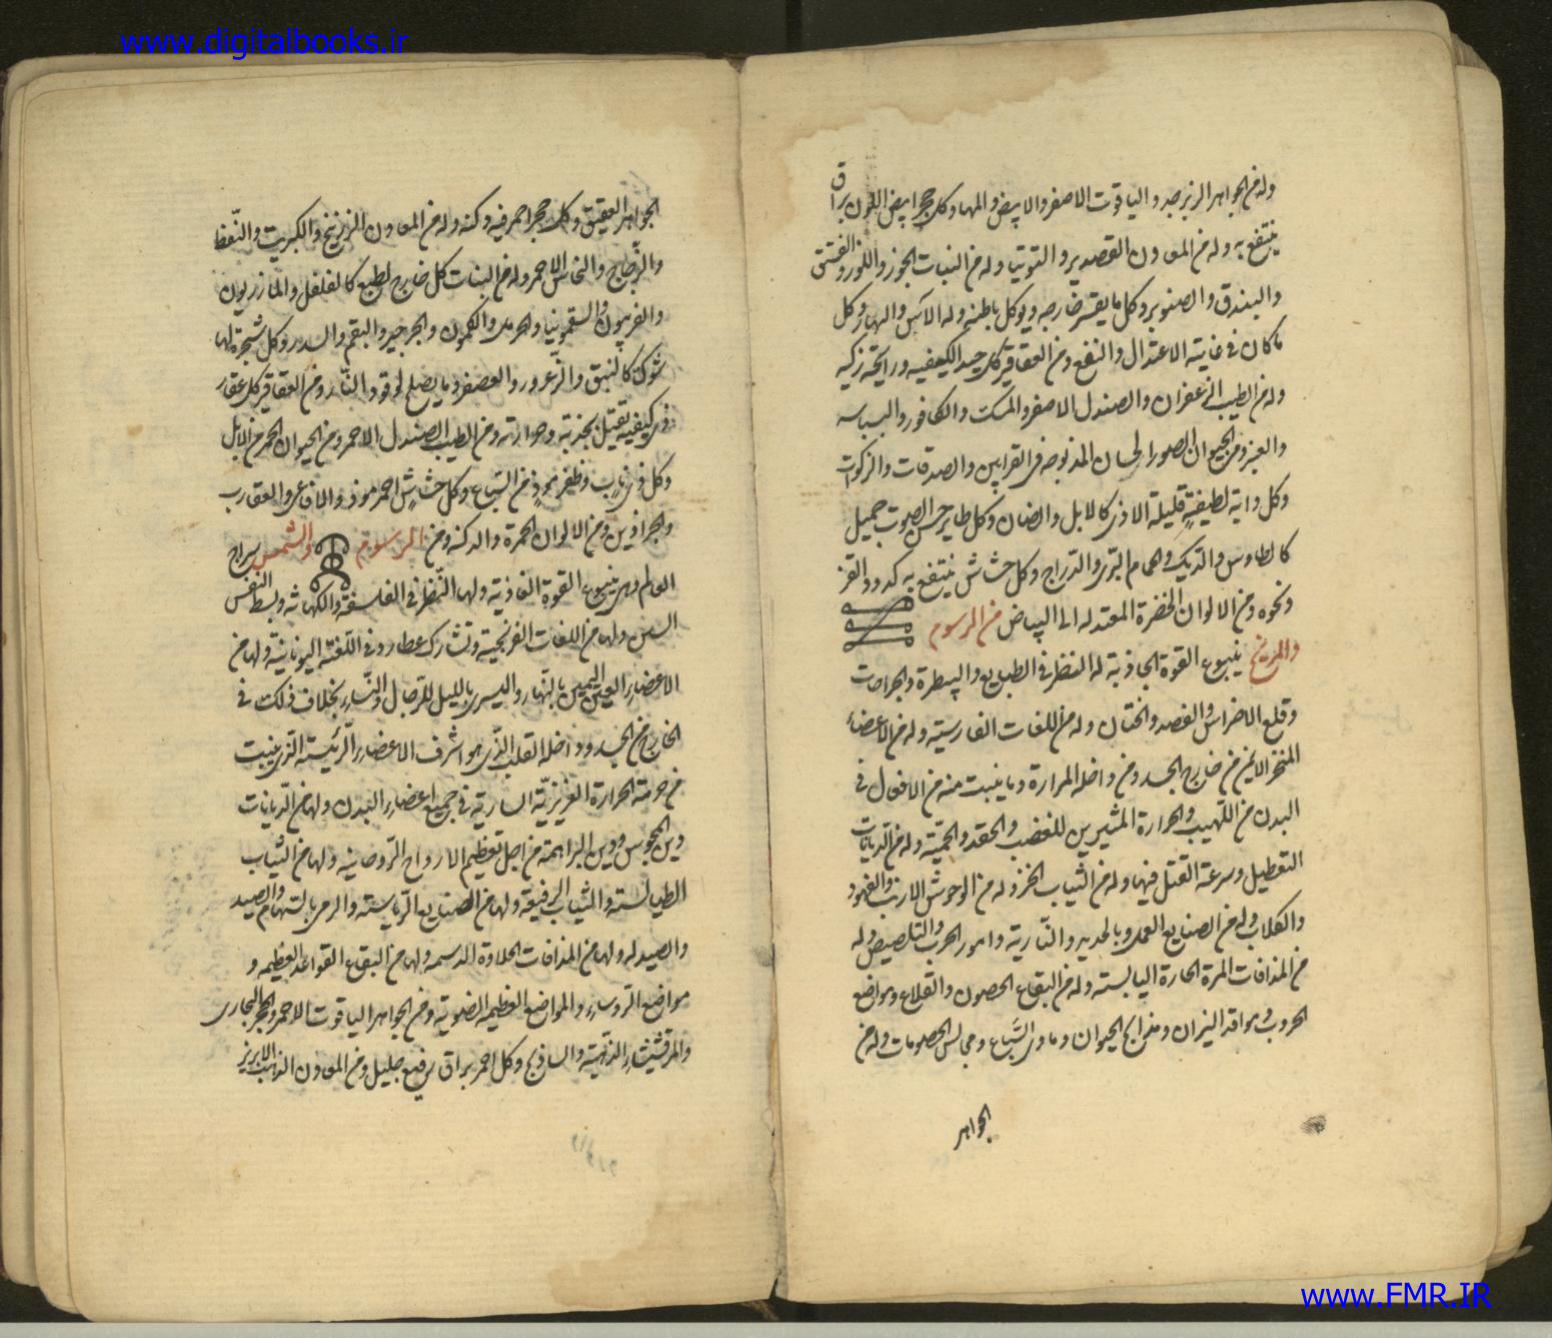 www.digitalbooks.ir
وله من الجواهر الزبرجد والياقوت الاصفر والابيض والمها وكل حجر ابيض اللون براق
ينتفع به وله من المعادن القصدير والتوتيا وله من النبات الجوز واللوز والفستق
والبندق والصنوبر وكل ما يقشر خارجه ويوكل باطنه وله الآس والبهار وكل
ما كان في غاية الاعتدال والنفع ومن العقاقير كل جيد الكيفيه ورايحته زكيه
وله من الطيب الزعفران والصندل الاصفر والمسك والكافور والبسباسه
والعنبر ومن الحيوان الصور الحسان المذبوحه في القرابين والصدقات والزكوات
وكل دابة لطيفة قليلة الاذى كالابل والضان وكل طاير حسن الصوت جميل
كالطاوس والديك وحمام البرى والدراج وكل حشاش ينتفع به كدود القز
ونحوه ومن الالوان الخضرة المعتدله الى البياض من الرسوم
والمريخ ينبوع القوة الجاذبة له النظر في الطبايع والبيطرة والجراحات
وقلع الاضراس والفصد والختان وله من اللغات الفارسية وله من الاعضاء
المنخر الايمن من خارج الجسد ومن داخله المرارة وما ينبت منه من الافعال في
البدن من اللهيب والحرارة المثيرين للغضب والحقد والحمية وله من الديانات
التعطيل وسرعة القتل فيها وله من الثياب الخز وله من الوحوش الارنب والفهود
والكلاب وله من الصنايع العمل بالحديد والنارية وامور الحرب والتلصيص وله
من المذاقات المرة الحارة اليابسته وله من البقاع الحصون والقلاع ومواضع
الحروب ومواقد النيران ومذابح الحيوان وماوى السباع ومجالس الخصومات وله من
الجواهر
الجواهر العقيق وكل حجر احمر فيه دكنه وله من المعادن الزرنيخ والكبريت والنفط
والزجاج والنحاس الاحمر وله من النبات كل خارج لطبع كالفلفل والمازريون
والفربيون والسقمونيا والحرمل والكمون والجرجير والبقم والسدر وكل شجرة لها
شوك كالنبق والزعرور والعصفر وما يصلح لوقود النار ومن العقاقير كل عقار
ذوى كيفيه تقتل بحدته وحرارته ومن الطيب الصندل الاحمر ومن الحيوان الحمر من الابل
وكل ذى ناب وظفر موذ من السباع وكل حشاش احمر موذ والافاعى والعقارب
والجراذين ومن الالوان الحمرة والدكنه ومن الرسوم والشمس سراج
العالم وهى ينبوع القوة الغاذية ولها النظر في الفلسفة والكهانه وبسط النفس
ولها من اللغات الفرنجية وتشارك عطارد في اللغته اليونانية ولها من
الاعضاء العين اليمين بالنهار واليسرى بالليل للرجال والنساء بخلاف ذلك في
الخارج من الجسد وداخله القلب الذى هو اشرف الاعضاء الرئيسته الذى ينبت
من حومته الحرارة الغريزية السارية في جميع اعضاء البدن ولها من الديانات
دين المجوس ودين البراهمة من اجل تعظيم الارواح الروحانيه ولها من الثياب
الطيالسته والثياب الرفيعة ولها من الصنايع الرياسته والرمى بالسهام والصيد
والصيدله ولها من المذاقات الحلاوة الدسمه ولها من البقاع القواعد العظيمه و
مواضع الروساء والمواضع العظيمه المضوية ومن الجواهر الياقوت الاحمر والحجر البجادى
والمرقشيثاء الذهبية والساذج وكل احمر براق رفيع جليل ومن المعادن الذهب الابريز
www.FMR.IR